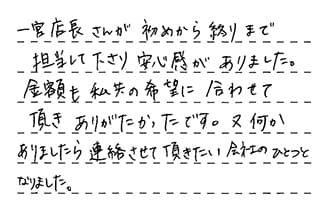 一宮店長さんが初めから終りまで
担当して下さり安心感がありました。
金額も私共の希望に合わせて
頂きありがたかったです。又何か
ありましたら連絡させて頂きたい会社のひとつと
なりました。